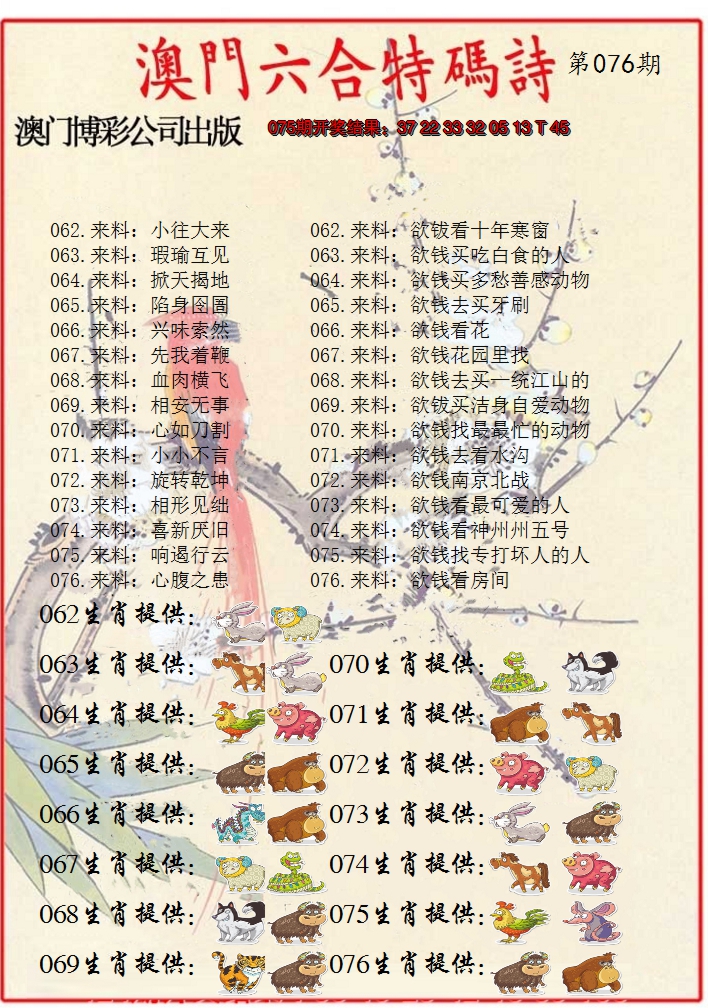 澳門六合特碼詩 第076期
澳门博彩公司出版 075期开奖结果：37 22 33 32 05 13 T 45
062.来料：小往大来 062.来料：欲钹看十年寒窗
063.来料：瑕瑜互见 063.来料：欲钱买吃白食的人
064.来料：掀天揭地 064.来料：欲钱买多愁善感动物
065.来料：陷身囹圄 065.来料：欲钱去买牙刷
066.来料：兴味索然 066.来料：欲钱看花
067.来料：先我着鞭 067.来料：欲钱花园里找
068.来料：血肉横飞 068.来料：欲钱去买一统江山的
069.来料：相安无事 069.来料：欲钹买洁身自爱动物
070.来料：心如刀割 070.来料：欲钱找最最忙的动物
071.来料：小小不言 071.来料：欲钱去看水沟
072.来料：旋转乾坤 072.来料：欲钱南京北战
073.来料：相形见绌 073.来料：欲钱看最可爱的人
074.来料：喜新厌旧 074.来料：欲钱看神州州五号
075.来料：响遏行云 075.来料：欲钱找专打坏人的人
076.来料：心腹之患 076.来料：欲钱看房间
062生肖提供：
063生肖提供： 070生肖提供：
064生肖提供： 071生肖提供：
065生肖提供： 072生肖提供：
066生肖提供： 073生肖提供：
067生肖提供： 074生肖提供：
068生肖提供： 075生肖提供：
069生肖提供： 076生肖提供：